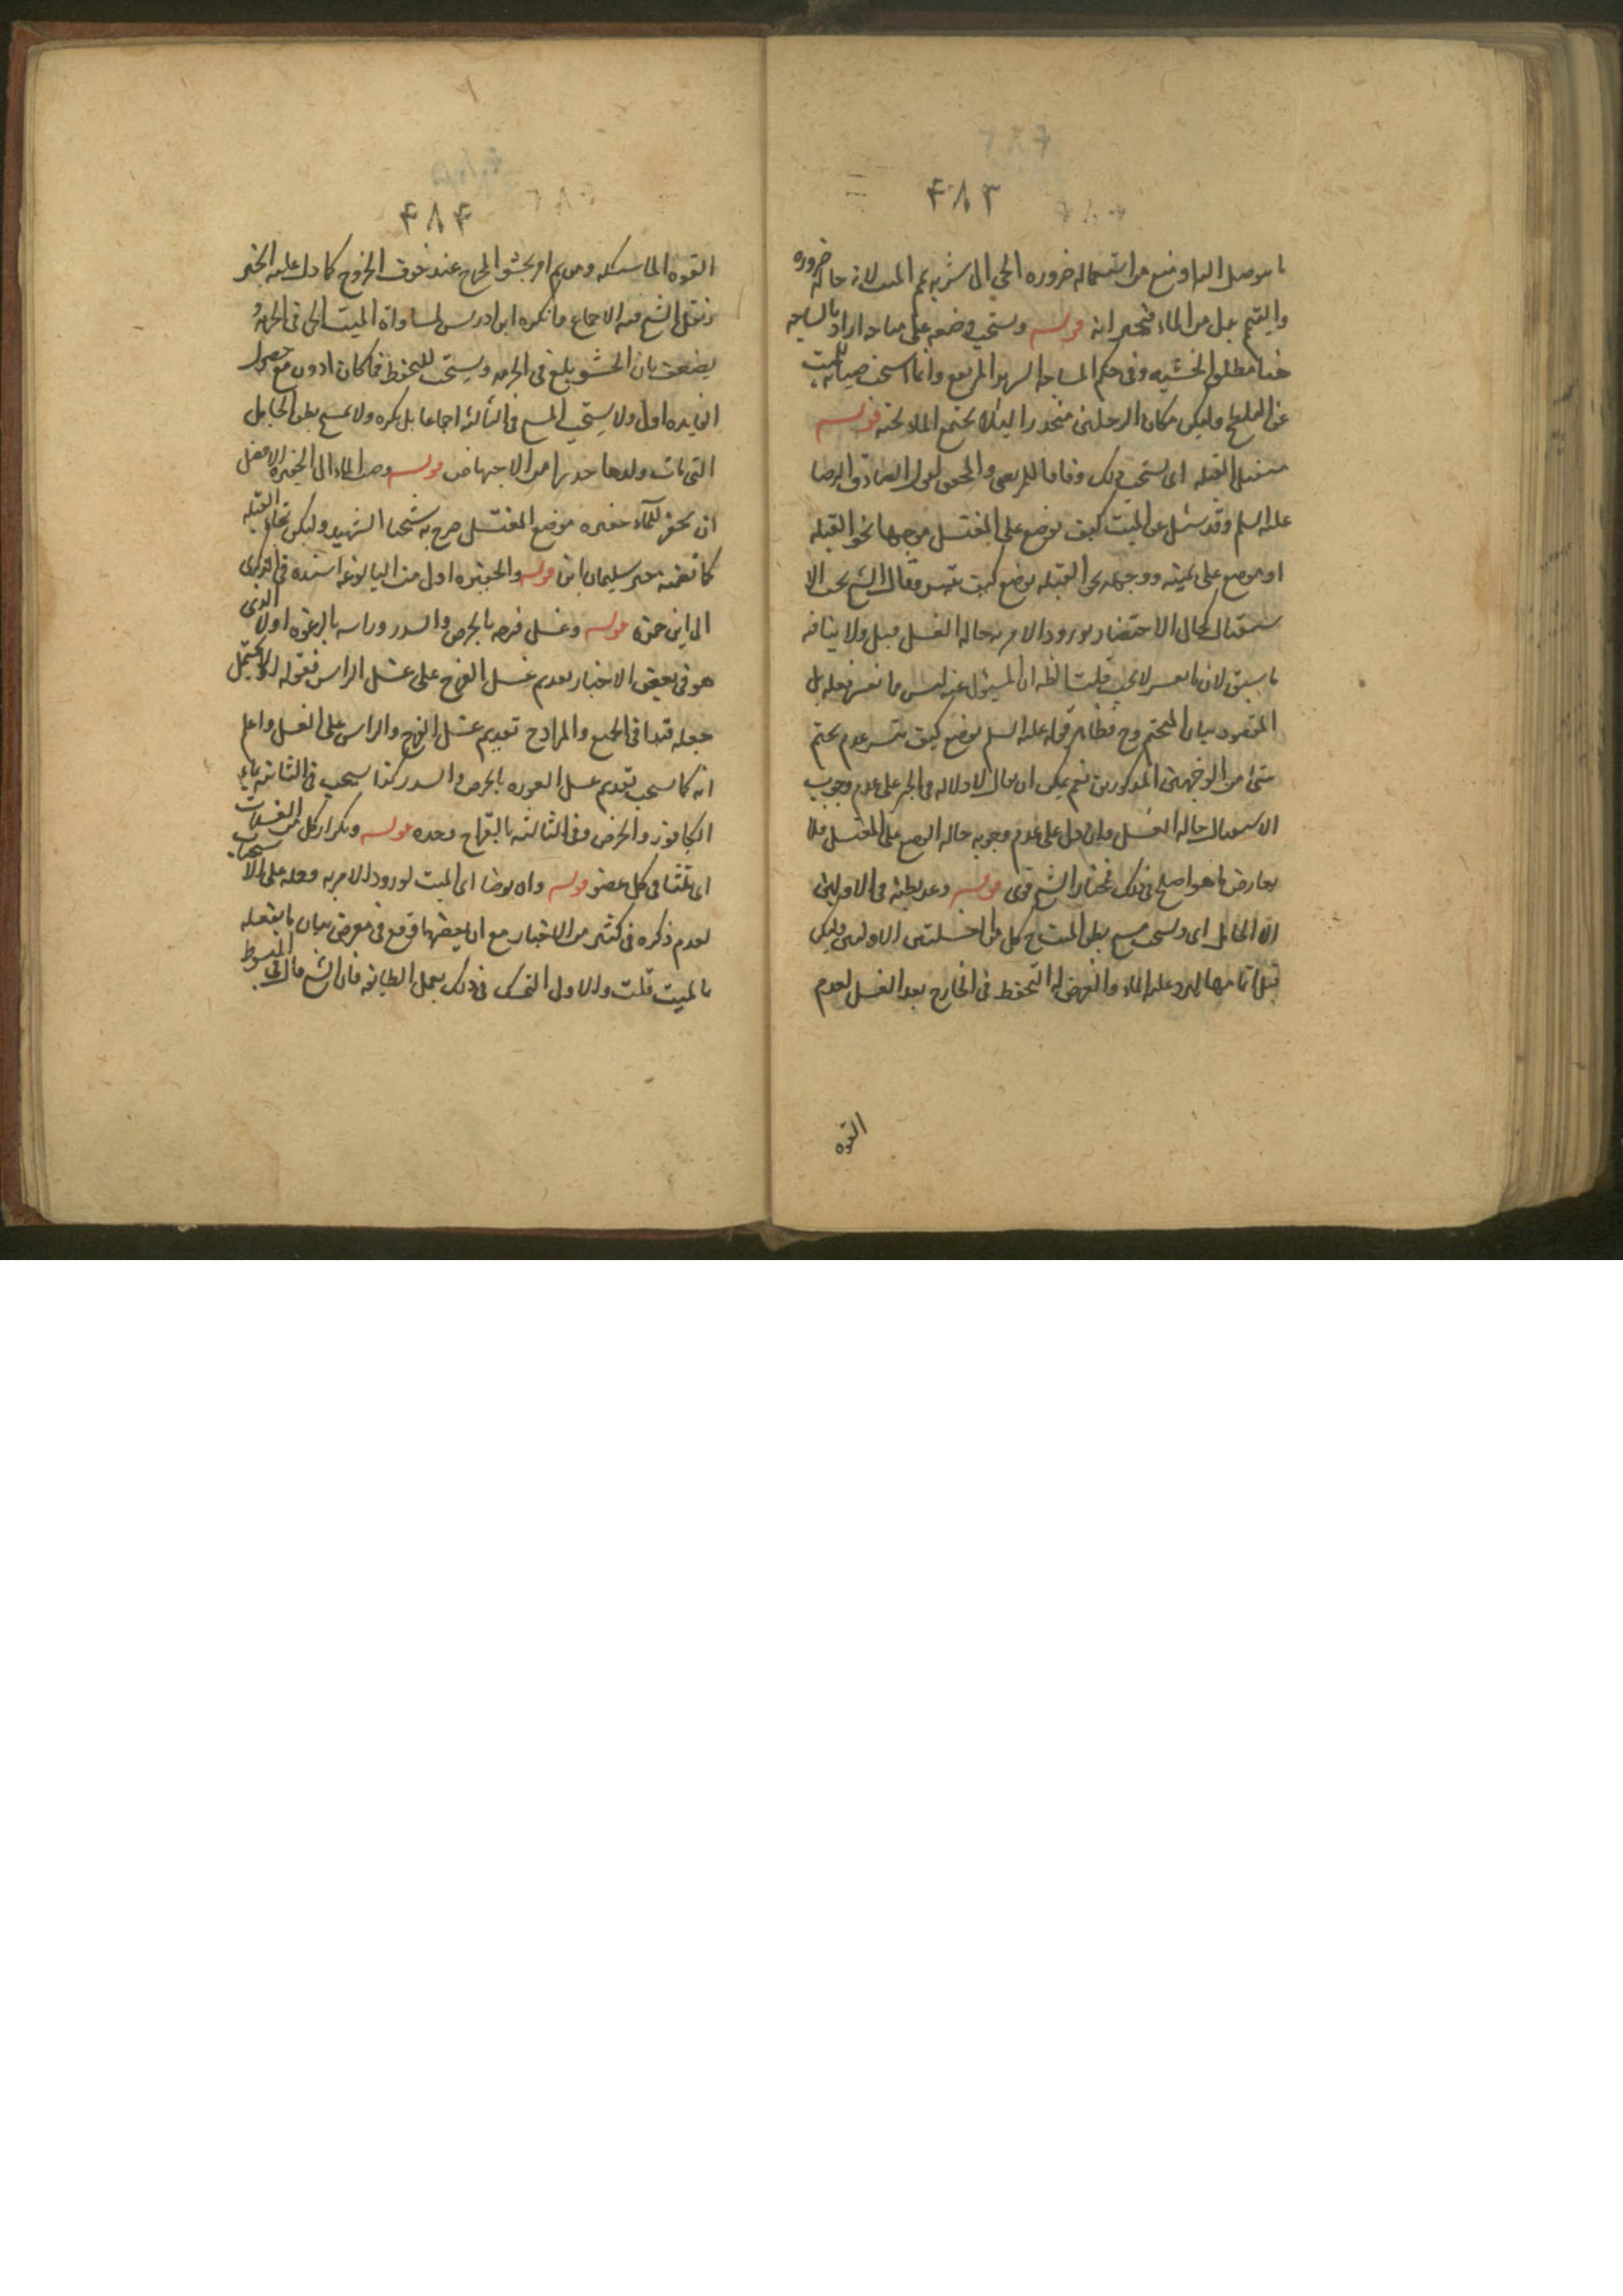 ۴۸۳
ما يوصل اليها او منع من استعماله ضروره الحي الى شربه يمم الميت لانه حاله ضروره
والتيمم بدل من الماء قوله ويستحب وضعه على ساجه اراد بالساجه
هنا مطلق الخشبه وفي حكم الساجه السرير المرتفع وانما استحب صيانه للميت
عن التلطخ وليكن مكان الرجلين منحدرا لئلا يجتمع الماء تحته قوله
مستقبل القبله اى يستحب ذلك وفاقا للمرتضى والمحقق لقول الصادق الرضا
عليه السلم وقد سئل عن الميت كيف يوضع على المغتسل موجها نحو القبله
او يوضع على يمينه ووجهه نحو القبله يوضع كيف تيسر وقال الشيخ يجب الا
ستقبال كحال الاحتضار لورود الامر به حاله الغسل قيل ولا ينافه
ما سبق لان ما تعسر لا يجب قلت الظ ان المسئول عنه ليس ما تعسر فعله بل
المقصود بيان المتحتم وح فظاهر قوله عليه السلم يوضع كيف تيسر عدم تحتم
شئ من الوجهين المذكورين نعم يمكن ان يقال لا دلاله في الخبر على عدم وجوب
الاستقبال حاله الغسل وان دل على عدم وجوبه حاله الوضع على المغتسل فلا
يعارض ما هو اصلح في ذلك فمختار الشيخ قوى قوله وغمز بطنه في الاوليين
الا الحامل اى ويستحب مسح بطن الميت ح كل من الغسلتين الاوليين وليكن
قبل تمامهما ليرد عليه الماء والغرض له التحفظ في الخارج بعد الغسل لعدم
القوه
۴۸۴
القوه الماسكه ومن ثم امر بحشو المخرج عند خوف الخروج كما دل عليه الخبر
ونقل الشيخ فيه الاجماع وانكره ابن ادريس لمساواة الميت الحى فى الحرمه
يضعف بان الحشو بلغ فى الحرمه ويستحب للتحفظ فما كان ادون مع حصول
الفايده اولى ولا يستحب المسح فى الثالثه اجماعا بل يكره ولا يمسح بطن الحامل
التى مات ولدها حذرا من الاجهاض قوله وصب الماء الى الحفيره الافضل
ان يحفر للماء حفيره موضع المغتسل صرح به شيخنا الشهيد وليكن تجاه القبله
كما تضمنه خبر سليمان ابن قوله والحفيره اولى من البالوعه اسنده فى الذكرى
الى ابن حمزه قوله وغسل فرجه بالحرض والسدر وراسه بالرغوه اولا الذى
هو فى بعض الاخبار تقديم غسل الفرج على غسل الراس فقوله اولا يحتمل
جعله قيدا فى الجميع والمراد ح تقديم غسل الفرج والراس على الغسل واعلم
انه كما يستحب تقديم غسل العوره بالحرض والسدر كذا يستحب فى الثانيه بماء
الكافور والحرض وفى الثالثه بالقراح وحده قوله وتكرار كل من الغسلات
اى ثلثا فى كل عضو قوله وان يوضا اى الميت لورود الامر به وحمله على الاستحباب
لعدم ذكره فى كثير من الاخبار مع ان بعضها وقع فى معرض بيان ما يفعله
بالميت قلت والاولى التمسك فى ذلك بعمل الطايفه فان الشيخ قال فى المبسوط